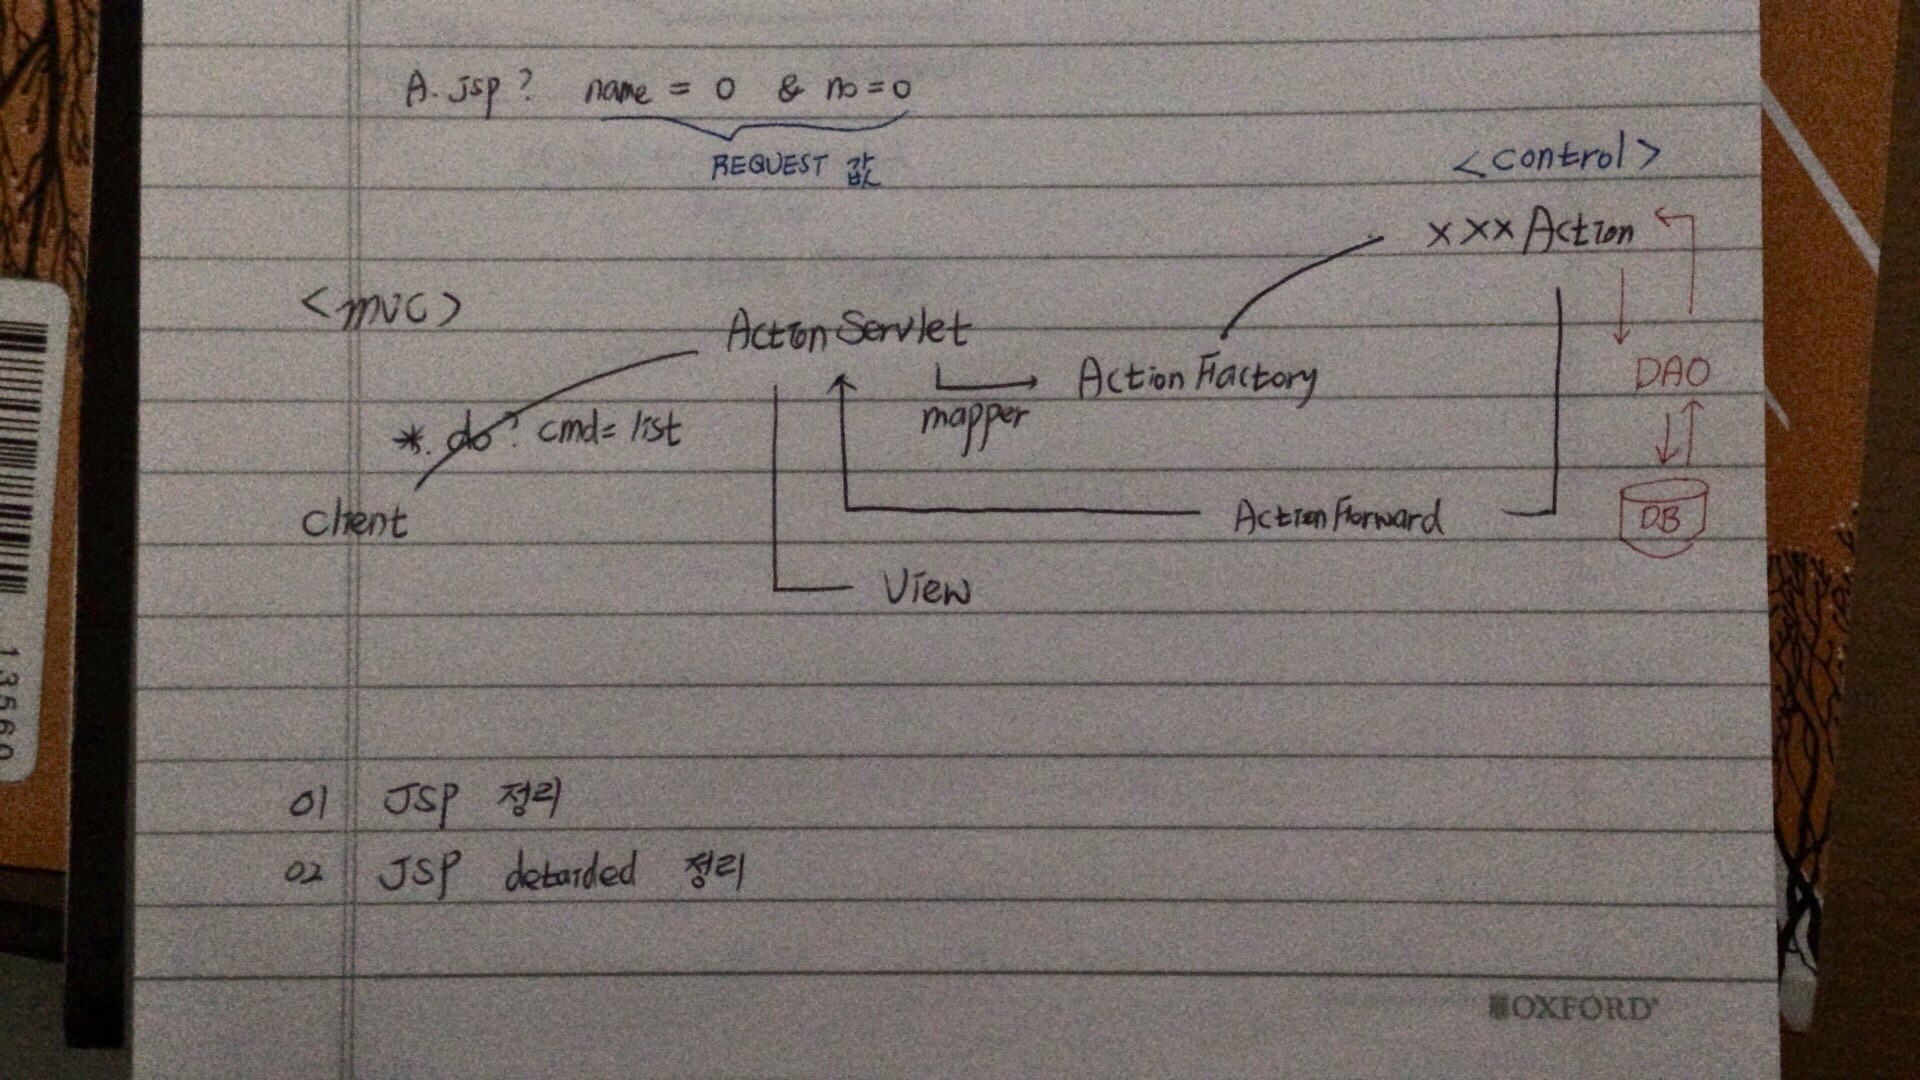 A.jsp? name = 0 & no = 0
REQUEST 값
<control>
xxx Action
<mvc>
Action Servlet
Action Factory
DAO
mapper
*.do? cmd= list
client
Action Forward
DB
View
01 JSP 정리
02 JSP detarded 정리
OXFORD
13560